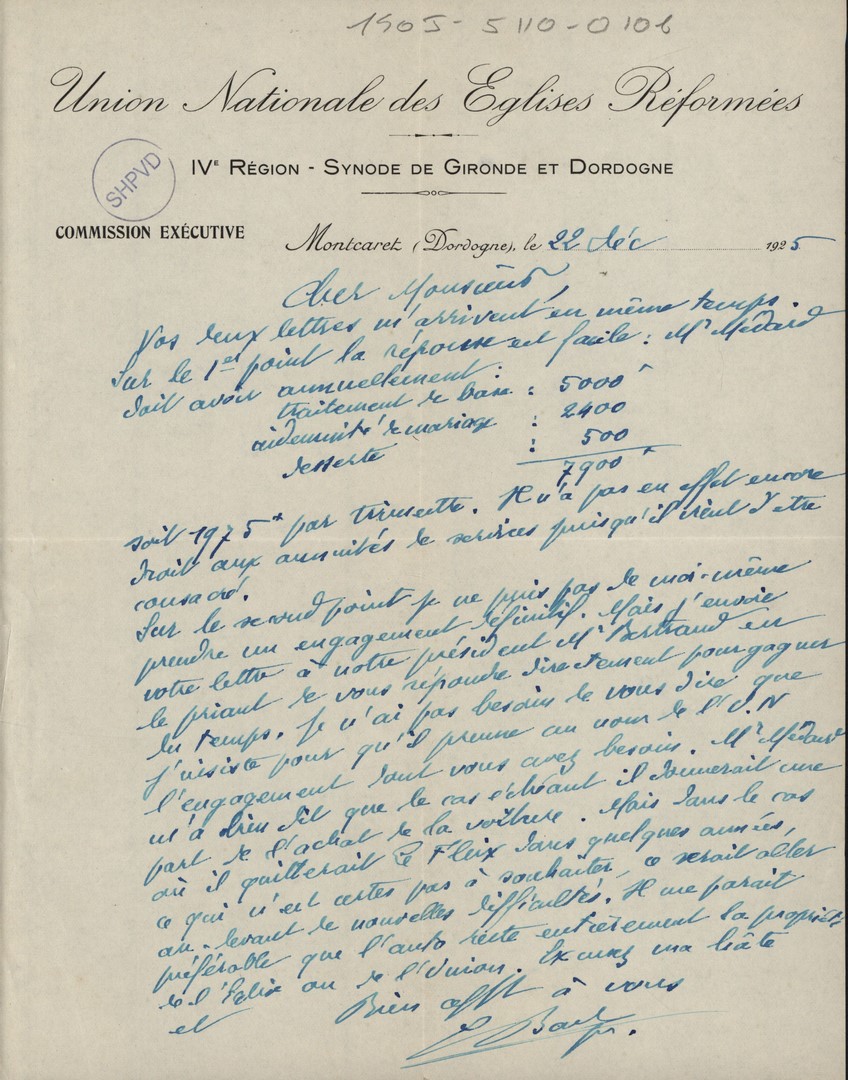 1905-5110-0106
Union Nationale des Eglises Réformées
IVE RÉGION - SYNODE DE GIRONDE ET DORDOGNE
SHPVD
COMMISSION EXÉCUTIVE
Montcaret (Dordogne), le 22 déc 1925
Cher Monsieur,
Vos deux lettres m'arrivent en même temps.
Sur le 1er point la réponse est facile : Mr Médard
doit avoir annuellement :
traitement de base : 5000
indemnité de mariage : 2400
desserte : 500
7900
soit 1975 par trimestre. Il n'a pas en effet encore
droit aux annuités de services puisqu'il vient d'être
consacré.
Sur le second point je ne puis pas de moi-même
prendre un engagement définitif. Mais j'envoie
votre lettre à notre président Mr Bertrand en
le priant de vous répondre directement pour gagner
du temps. Je n'ai pas besoin de vous dire que
j'insiste pour qu'il prenne au nom de l'U.N
l'engagement dont vous avez besoin. Mr Médard
m'a bien dit que le cas échéant il donnerait une
part de l'achat de la voiture. Mais dans le cas
où il quitterait Le Fleix dans quelques années,
ce qui n'est certes pas à souhaiter, ce serait aller
au-devant de nouvelles difficultés. Il me parait
préférable que l'auto reste entièrement la propriété
de l'Eglise ou de l'Union. Excusez ma hâte
et Bien afft à vous